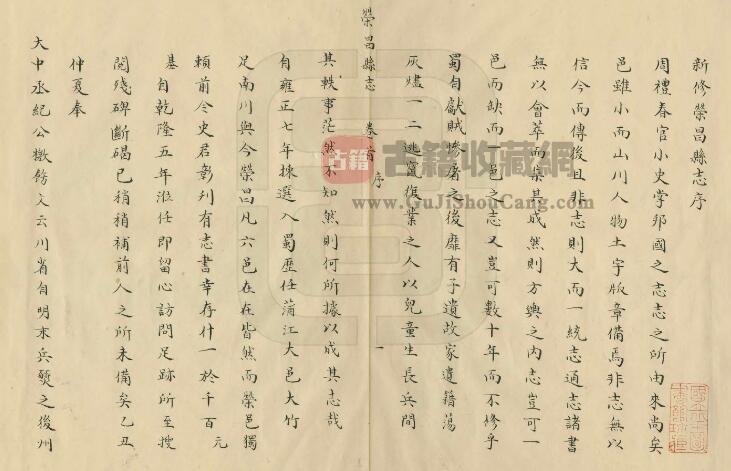 新修榮昌縣志序
周禮春官小史掌邦國之志志之所由來尚矣
邑雖小而山川人物土宇版章備焉非志無以
信今而傳後且非志則大而一統志通志諸書
無以會萃而集其成然則方輿之內志豈可一
邑而缺而一邑之志又豈可數十年而不修乎
蜀自獻賊慘屠之後靡有孑遺故家遺籍蕩
灰燼一二逃竄復業之人以兒童生長兵間
榮昌縣志 卷首 序 一
其軼事茫然不知然則何所據以成其志哉
自雍正七年揀選入蜀歷任蒲江大邑大竹
足南川與今榮昌凡六邑在在皆然而榮邑獨
賴前令史君彰刋有志書幸存什一於千百元
基自乾隆五年涖任即留心訪問足跡所至搜
閱殘碑斷碣已稍稍補前人之所未備矣乙丑
仲夏奉
大中丞紀公檄飭文云川省自明末兵燹之後州
古籍 古籍收藏網
www.GuJiShouCang.com